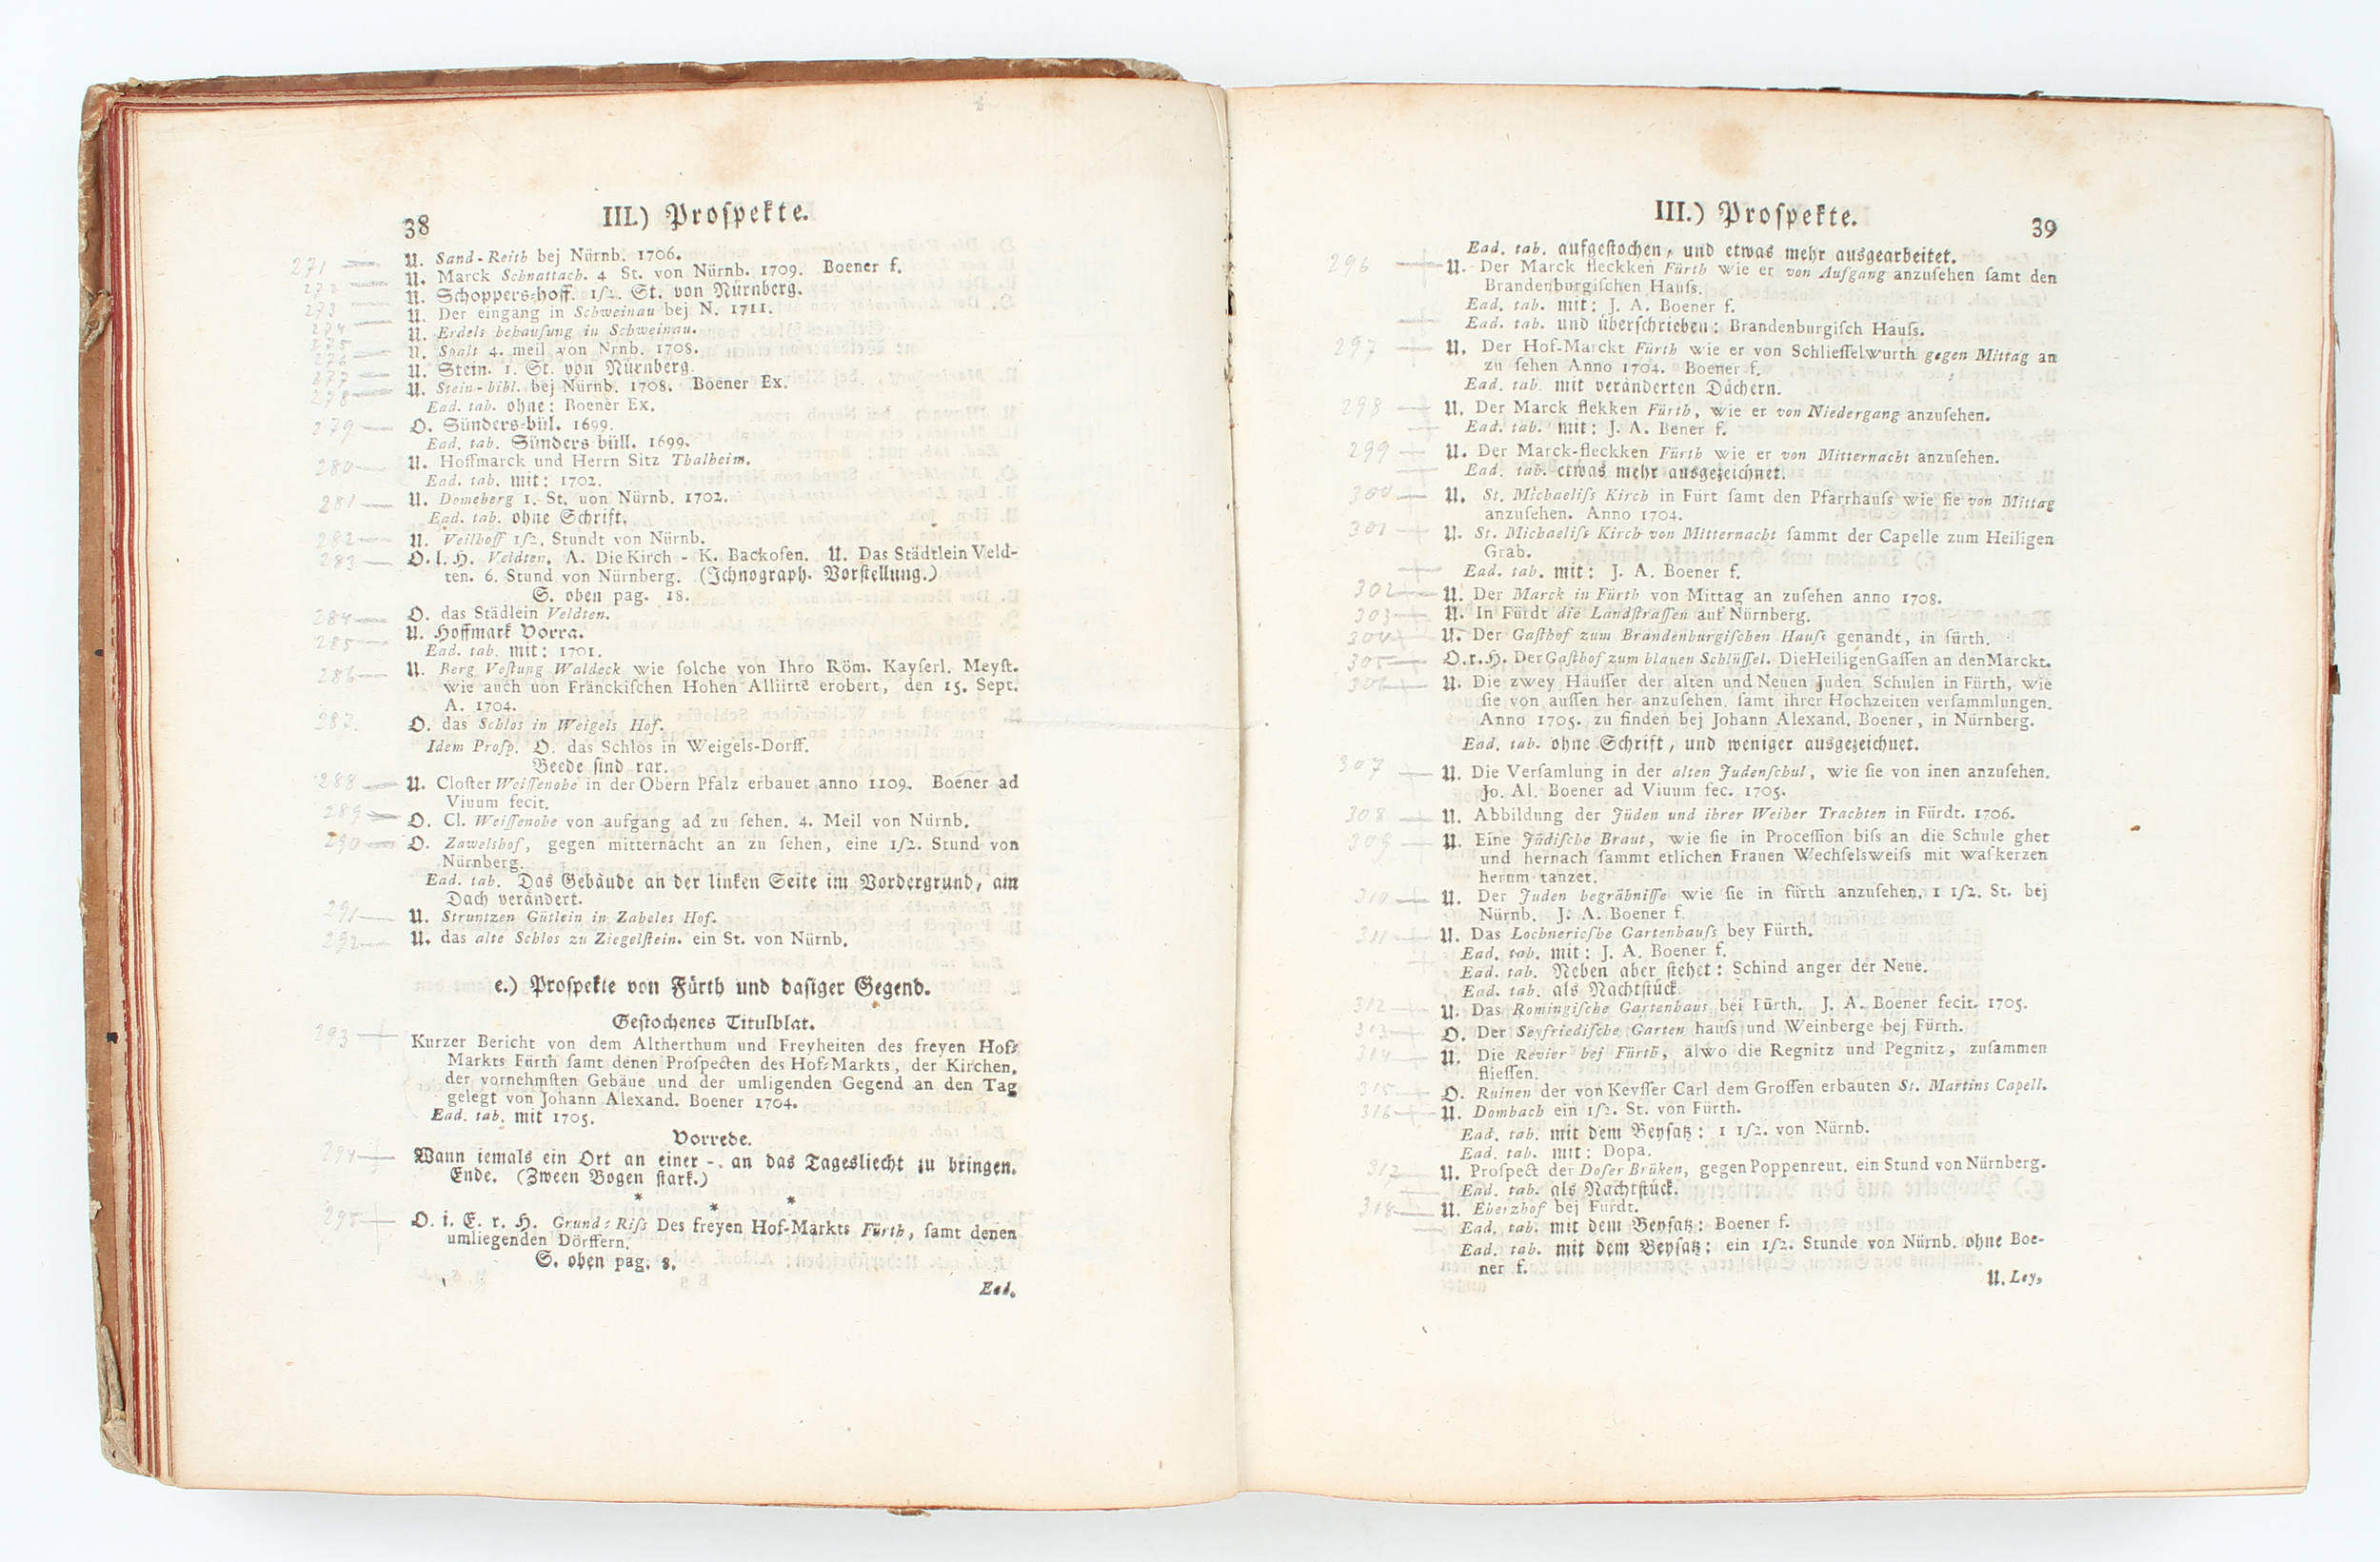 38
III.) Proſpekte.
271 U. Sand-Reith bej Nürnb. 1706.
272 U. Marck Schnattach. 4 St. von Nürnb. 1709. Boener f.
273 U. Schoppers-hoff. 1ſ2. St. von Nürnberg.
274 U. Der eingang in Schweinau bej N. 1711.
275 U. Erdels behauſung in Schweinau.
276 U. Spalt 4. meil von Nrnb. 1708.
277 U. Stein. 1. St. von Nürnberg.
278 U. Stein-bühl. bej Nürnb. 1708. Boener Ex.
Ead. tab. ohne: Boener Ex.
279 O. Sünders-bül. 1699.
Ead. tab. Sünders büll. 1699.
280 U. Hoffmarck und Herrn Sitz Thalheim.
Ead. tab. mit: 1702.
281 U. Domeberg 1. St. uon Nürnb. 1702.
Ead. tab. ohne Schrift.
282 U. Veilhoff 1ſ2. Stundt von Nürnb.
283 O. l. H. Veldten. A. Die Kirch - K. Backofen. U. Das Städtlein Veld-
ten. 6. Stund von Nürnberg. (Ichnograph. Vorſtellung.)
S. oben pag. 18.
284 O. das Städlein Veldten.
285 U. Hoffmark Vorra.
Ead. tab. mit: 1701.
286 U. Berg Veſtung Waldeck wie ſolche von Ihro Röm. Kayſerl. Meyſt.
wie auch uon Fränckiſchen Hohen Alliirtē erobert, den 15. Sept.
A. 1704.
287. O. das Schlos in Weigels Hof.
Idem Proſp. O. das Schlos in Weigels-Dorff.
Beede ſind rar.
288 U. Cloſter Weiſſenohe in der Obern Pfalz erbauet anno 1109. Boener ad
Viuum fecit.
289 O. Cl. Weiſſenohe von aufgang ad zu ſehen. 4. Meil von Nürnb.
290 O. Zawelshof, gegen mitternacht an zu ſehen, eine 1ſ2. Stund von
Nürnberg.
Ead. tab. Das Gebäude an der linken Seite im Vordergrund, am
Dach verändert.
291 U. Struntzen Gütlein in Zabeles Hof.
292 U. das alte Schlos zu Ziegelſtein. ein St. von Nürnb.
e.) Proſpekte von Fürth und daſiger Gegend.
Geſtochenes Titulblat.
293 Kurzer Bericht von dem Altherthum und Freyheiten des freyen Hof-
Markts Fürth ſamt denen Proſpecten des Hof-Markts, der Kirchen,
der vornehmſten Gebäue und der umligenden Gegend an den Tag
gelegt von Johann Alexand. Boener 1704.
Ead. tab. mit 1705.
Vorrede.
294 Wann iemals ein Ort an einer -. an das Tagesliecht zu bringen.
Ende. (Zween Bogen ſtark.)
* * *
295 O. i. E. r. H. Grund-Riſs Des freyen Hof-Markts Fürth, ſamt denen
umliegenden Dörffern.
S. oben pag. 8.
Ead.
III.) Proſpekte.
39
Ead. tab. aufgeſtochen, und etwas mehr ausgearbeitet.
296 U. Der Marck fleckken Fürth wie er von Aufgang anzuſehen ſamt den
Brandenburgiſchen Hauſs.
Ead. tab. mit: J. A. Boener f.
Ead. tab. und überſchrieben: Brandenburgiſch Hauſs.
297 U. Der Hof-Marckt Fürth wie er von Schlieſſelwurth gegen Mittag an
zu ſehen Anno 1704. Boener f.
Ead. tab. mit veränderten Dächern.
298 U. Der Marck flekken Fürth, wie er von Niedergang anzuſehen.
Ead. tab. mit: J. A. Bener f.
299 U. Der Marck-fleckken Fürth wie er von Mitternacht anzuſehen.
Ead. tab. etwas mehr ausgezeichnet.
300 U. St. Michaeliſs Kirch in Fürt ſamt den Pfarrhauſs wie ſie von Mittag
anzuſehen. Anno 1704.
301 U. St. Michaeliſs Kirch von Mitternacht ſammt der Capelle zum Heiligen
Grab.
Ead. tab. mit: J. A. Boener f.
302 U. Der Marck in Fürth von Mittag an zuſehen anno 1708.
303 U. In Fürdt die Landſtraſſen auf Nürnberg.
304 U. Der Gaſthof zum Brandenburgiſchen Hauſs genandt, in fürth.
305 O. r. H. Der Gaſthof zum blauen Schlüſſel. Die Heiligen Gaſſen an den Marckt.
306 U. Die zwey Häuſſer der alten und Neuen Juden Schulen in Fürth, wie
ſie von auſſen her anzuſehen, ſamt ihrer Hochzeiten verſammlungen.
Anno 1705. zu finden bej Johann Alexand. Boener, in Nürnberg.
Ead. tab. ohne Schrift, und weniger ausgezeichnet.
307 U. Die Verſamlung in der alten Judenſchul, wie ſie von inen anzuſehen.
Jo. Al. Boener ad Viuum fec. 1705.
308 U. Abbildung der Jüden und ihrer Weiber Trachten in Fürdt. 1706.
309 U. Eine Jüdiſche Braut, wie ſie in Proceſſion biſs an die Schule ghet
und hernach ſammt etlichen Frauen Wechſelsweiſs mit waſkerzen
herum tanzet.
310 U. Der Juden begräbniſſe wie ſie in fürth anzuſehen. 1 1ſ2. St. bej
Nürnb. J. A. Boener f.
311 U. Das Lochnericſhe Gartenhauſs bey Fürth.
Ead. tab. mit: J. A. Boener f.
Ead. tab. Neben aber ſtehet: Schind anger der Neue.
Ead. tab. als Nachtſtück.
312 U. Das Romingiſche Gartenhaus bei Fürth. J. A. Boener fecit. 1705.
313 O. Der Seyfriediſche Garten hauſs und Weinberge bej Fürth.
314 U. Die Revier bej Fürth, alwo die Regnitz und Pegnitz, zuſammen
flieſſen.
315 O. Ruinen der von Keyſſer Carl dem Groſſen erbauten St. Martins Capell.
316 U. Dombach ein 1ſ2. St. von Fürth.
Ead. tab. mit dem Beyſatz: 1 1ſ2. von Nürnb.
Ead. tab. mit: Dopa.
317 U. Proſpect der Doſer Brüken, gegen Poppenreut. ein Stund von Nürnberg.
Ead. tab. als Nachtſtück.
318 U. Eberzhof bej Fürdt.
Ead. tab. mit dem Beyſatz: Boener f.
Ead. tab. mit dem Beyſatz: ein 1ſ2. Stunde von Nürnb. ohne Boe-
ner f.
U. Ley,